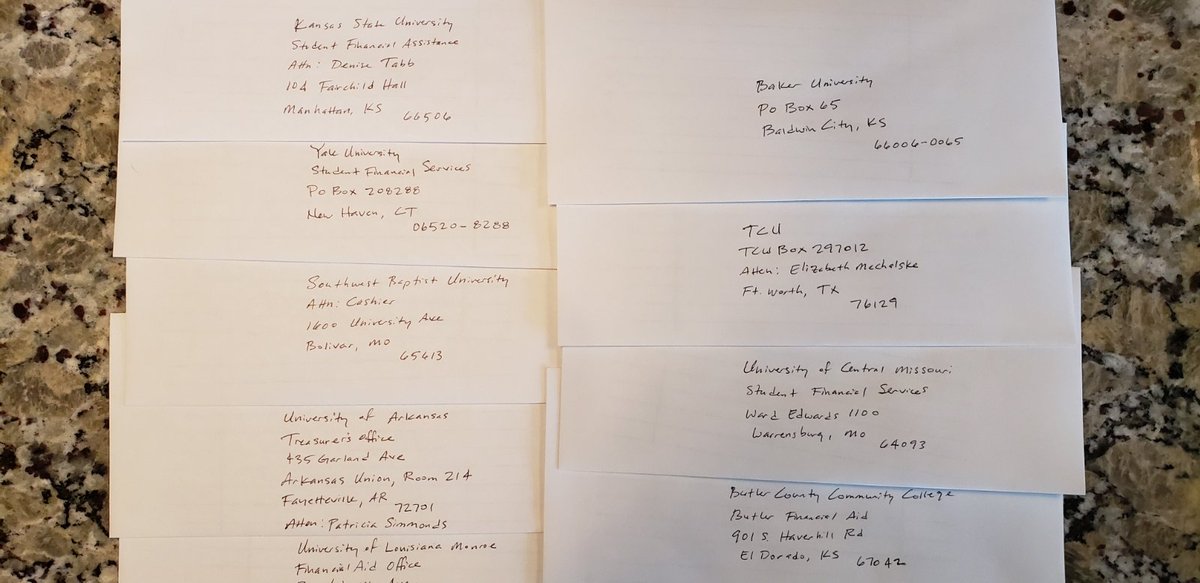 Kansas State University
Student Financial Assistance
Attn: Denise Tabb
104 Fairchild Hall
Manhattan, KS
66506
Yale University
Student Financial Services
PO Box 208288
New Haven, CT
06520-8288
Southwest Baptist University
Attn: Cashier
1600 University Ave
Bolivar, MO
65613
University of Arkansas
Treasurer's Office
435 Garland Ave
Arkansas Union, Room 214
Fayetteville, AR
72701
Attn: Patricia Simmonds
University of Louisiana Monroe
Financial Aid Office
Baker University
PO Box 65
Baldwin City, KS
66006-0065
TCU
TCU Box 297012
Attn: Elizabeth Mechalske
Ft. Worth, TX
76129
University of Central Missouri
Student Financial Services
Ward Edwards 1100
Warrensburg, MO
64093
Butler County Community College
Butler Financial Aid
901 S. Haverhill Rd
El Dorado, KS
67042